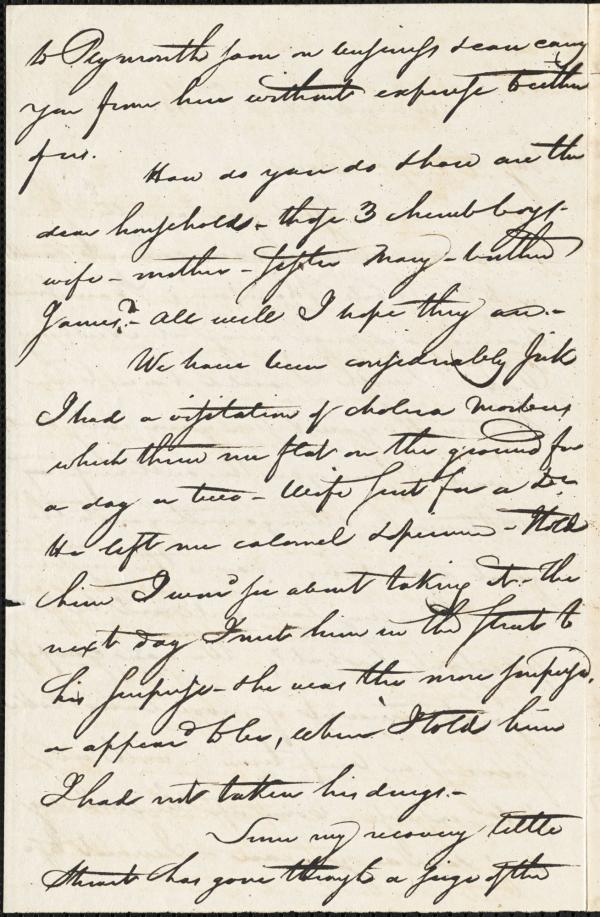 to Plymouth soon on business & can carry
you from here without expense to either
of us.
How do you do & how are the
dear households - those 3 cherub boys -
wife - mother - sister Mary - brother
James? - All well I hope they are. -
We have been considerably sick
I had a visitation of cholera morbus,
which threw me flat on the ground for
a day or two - Wife sent for a Dr.
He left me calomel & opium - I told
him I wou'd see about taking it - the
next day I met him in the street to
his surprise - & he was the more surprised,
or appear'd to be, when I told him
I had not taken his drugs. -
Since my recovery little
Stuart has gone through a siege of the